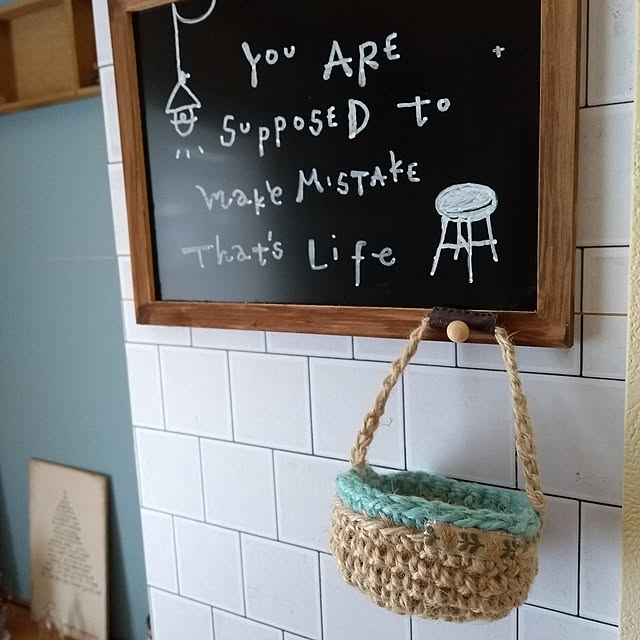 YOU ARE
SUPPOSED to
make MISTAKE
That's Life